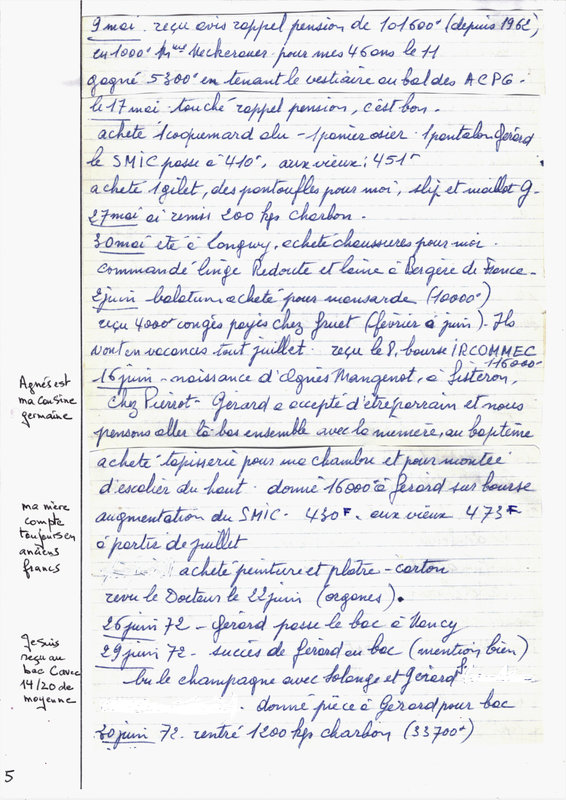 9 mai. reçu avis rappel pension de 101600f (depuis 1962)
en 1000f Neckerauer pour mes 46 ans le 11
gagné 5300f en tenant le vestiaire au bal des ACPG.
le 17 mai touché rappel pension, c'est bon.
acheté 1 coquemard alu - 1 panier osier. 1 pantalon Gérard
le SMIC passe à 410f, aux vieux: 451f
acheté 1 gilet, des pantoufles pour moi, slip et maillot G.
27 mai ai remis 200 kgs charbon.
30 mai été à Longwy, acheté chaussures pour moi.
commandé linge Redoute et laine à Bergère de France.
2 juin balatum acheté pour mansarde (10000f)
reçu 4000f congés payés chez Gruet (février à juin). Ils
vont en vacances tout juillet. reçu le 8, bourse IRCOMMEC
116000f
16 juin - naissance d'Agnès Mangenot, à Sisteron,
chez Pierrot - Gérard a accepté d'être parrain et nous
pensons aller là bas ensemble avec la mémère, au baptême
acheté tapisserie pour ma chambre et pour montée
d'escalier du haut. donné 16000f à Gérard sur bourse
augmentation du SMIC. 430F. aux vieux 473F
à partir de juillet
acheté peinture et plâtre - carton
revu le Docteur le 22 juin (organes).
26 juin 72 - Gérard passe le bac à Nancy
29 juin 72 - succès de Gérard au bac (mention bien)
bu le champagne avec Solange et Gérard S.
. donné pièce à Gérard pour bac
30 juin 72. rentré 1200 kgs charbon (33700f)
Agnès est
ma cousine
germaine
ma mère
compte
toujours en
anciens
francs
Je suis
reçu au
bac C avec
14/20 de
moyenne
5